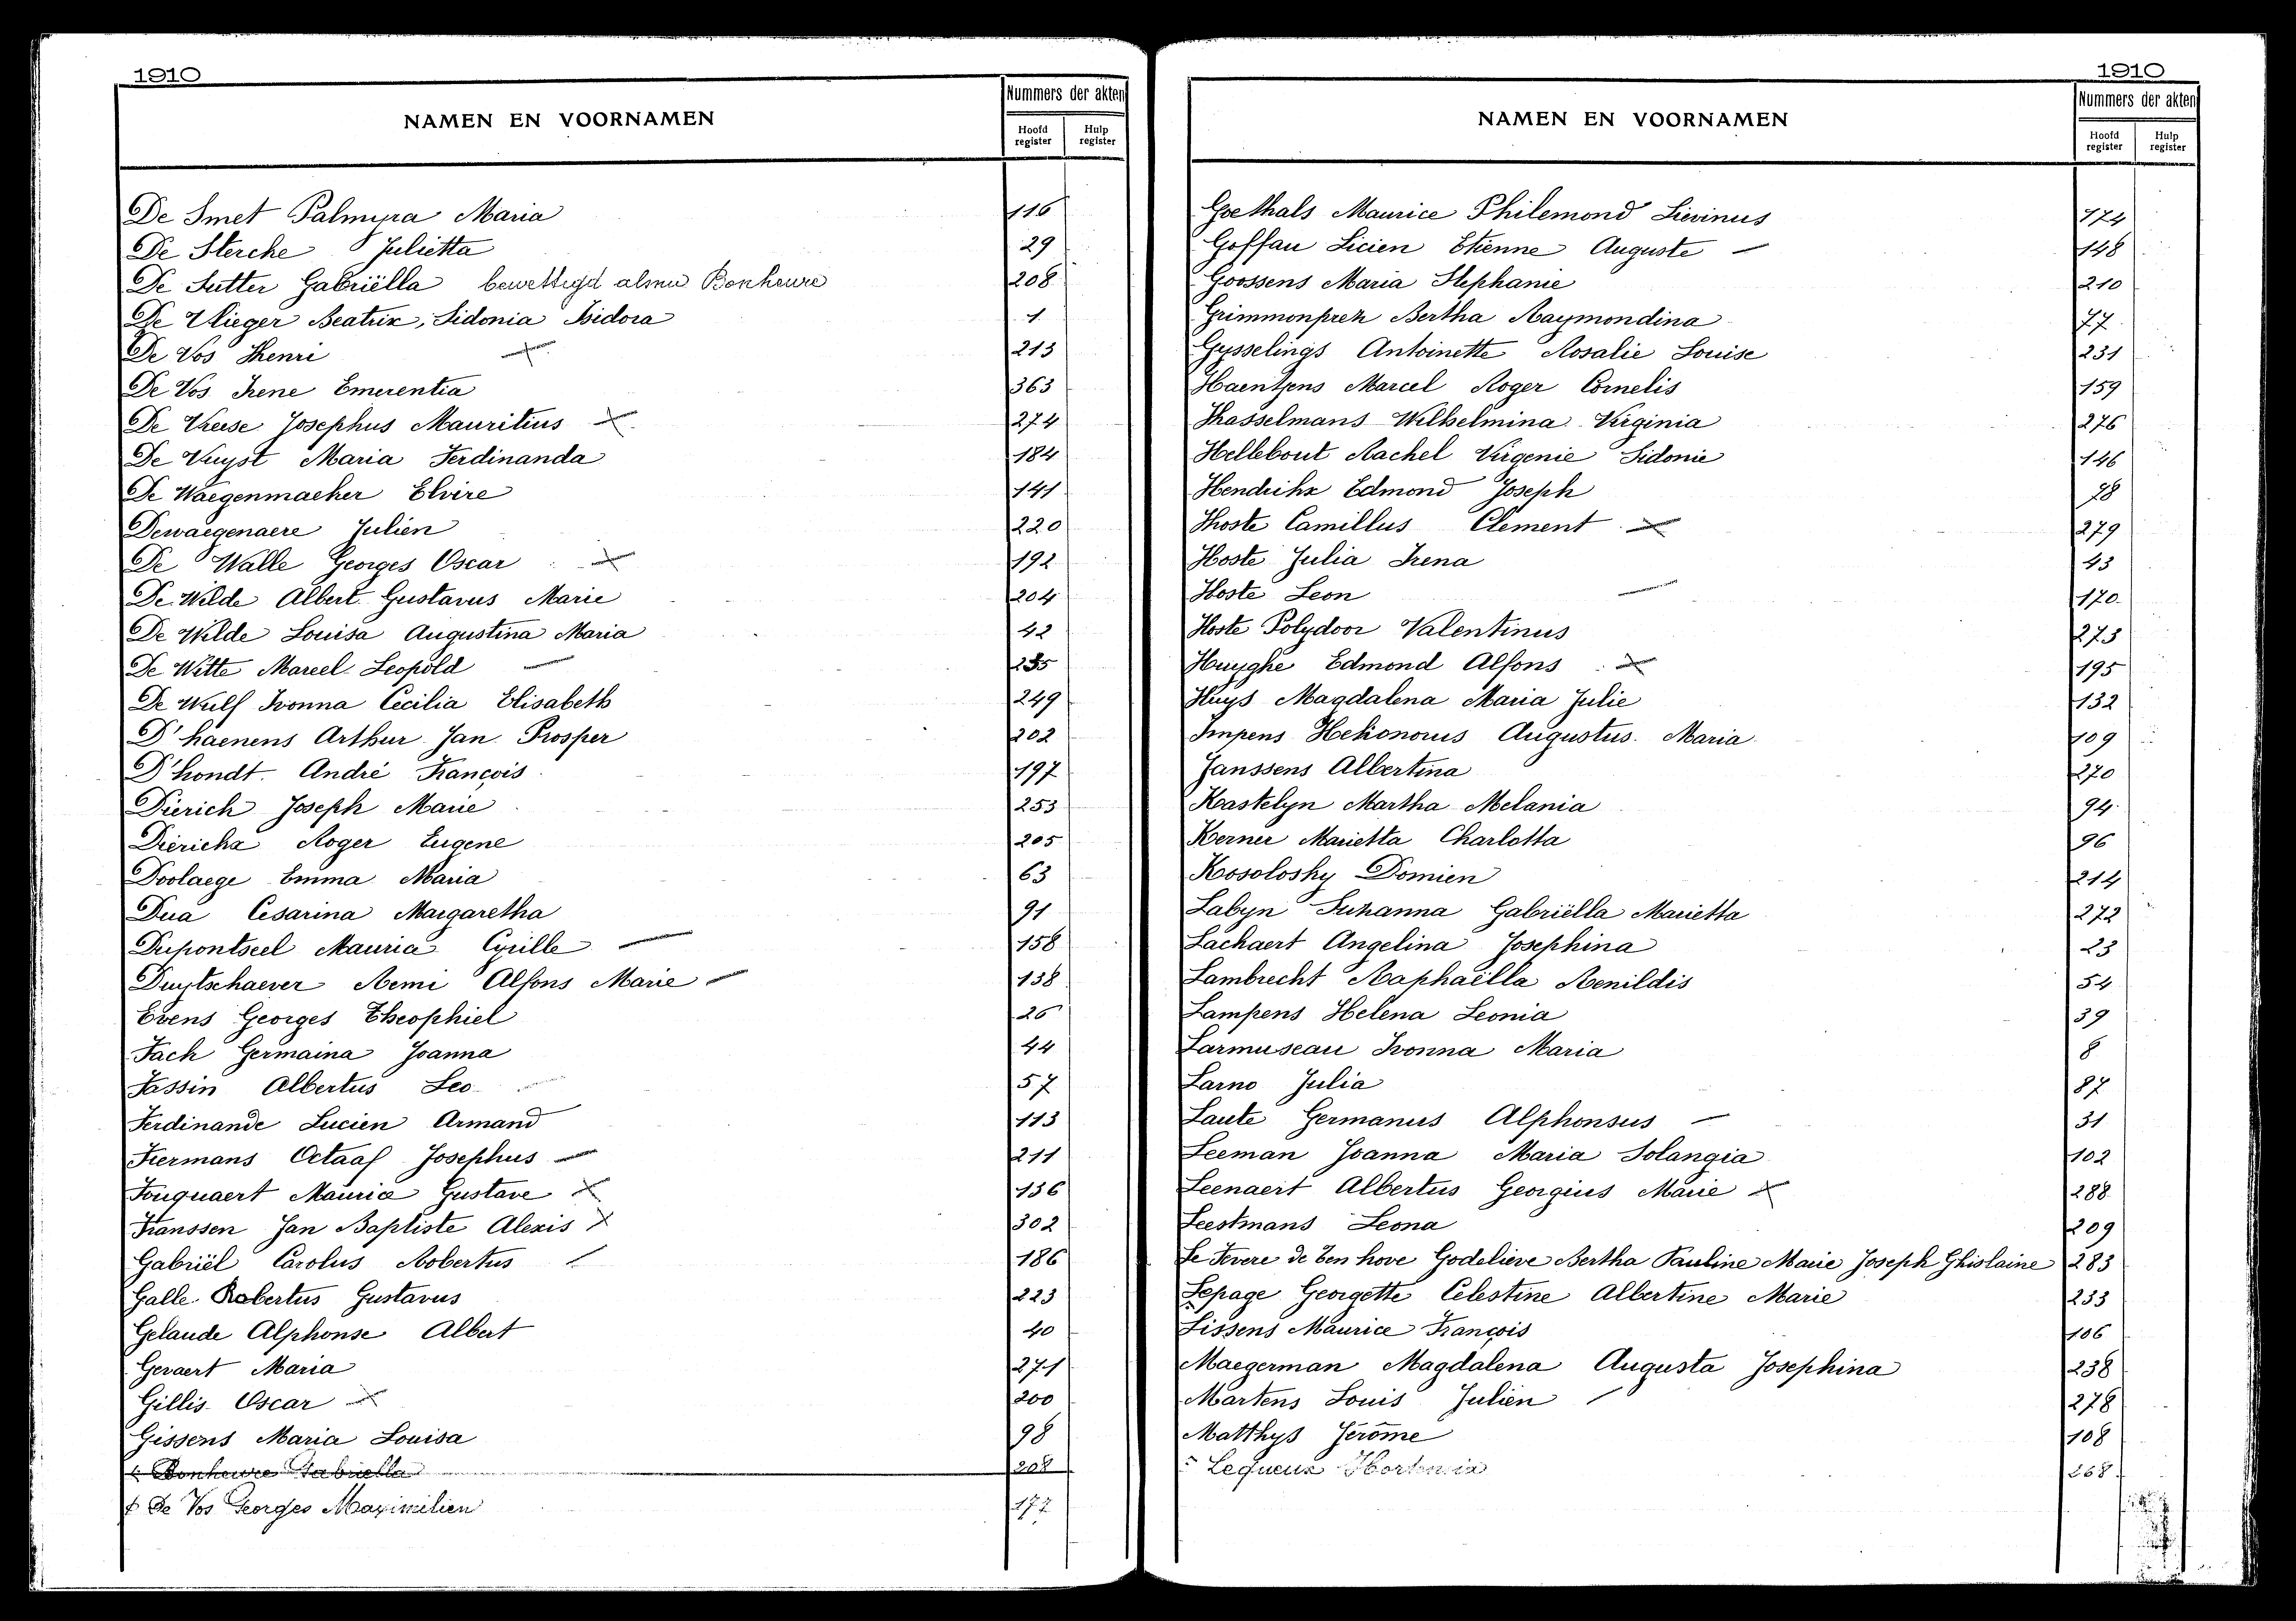 1910
NAMEN EN VOORNAMEN
Nummers der akten
Hoofd register
Hulp register
De Smet Palmyra Maria 116
De Sterche Julietta 29
De Sutter Gabriëlla bewettigd als Bonheure 208
De Vlieger Beatrix, Sidonia Isidora 1
De Vos Henri 213
De Vos Irene Emerentia 363
De Vreese Josephus Mauritius 274
De Vuyst Maria Ferdinanda 184
De Waegenmaeker Elvire 141
Dewaegenaere Julien 220
De Walle Georges Oscar 192
De Wilde Albert Gustavus Marie 204
De Wilde Louisa Augustina Maria 42
De Witte Marcel Leopold
De Wulf Ivonna Cecilia Elisabeth 249
D'haenens Arthur Jan Prosper 202
D'hondt André François 197
Dierich Joseph Marie 253
Diericks Roger Eugene 205
Doolaege Emma Maria 63
Dua Cesarina Margaretha 91
Dupontseel Maurice Cyrille 158
Duytschaever Remi Alfons Marie 138
Evens Georges Theophiel 26
Fach Germaina Joanna 44
Fassin Albertus Leo 57
Ferdinande Lucien Armand 113
Fiermans Octaaf Josephus 211
Fouquaert Maurice Gustave 136
Franssen Jan Baptiste Alexis 302
Gabriël Carolus Robertus 186
Galle Robertus Gustavus 223
Gelaude Alphonse Albert 40
Gevaert Maria 271
Gillis Oscar 200
Gissens Maria Louisa 98
Bonheure Gabriella 208
De Vos Georges Maximilien 177
1910
NAMEN EN VOORNAMEN
Nummers der akten
Hoofd register
Hulp register
Goethals Maurice Philemond Lievinus 174
Goffau Licien Etienne Auguste 148
Goossens Maria Stephanie 210
Grimmonprez Bertha Raymondina 77
Gysselings Antoinette Rosalie Louise 231
Haentjens Marcel Roger Cornelis 159
Hasselmans Wilhelmina Virginia 276
Hellebout Rachel Virgenie Sidonie 146
Hendrikx Edmond Joseph 28
Hoste Camillus Clement 279
Hoste Julia Irena 43
Hoste Leon 170
Hoste Polydoor Valentinus 273
Huyghe Edmond Alfons 195
Huys Magdalena Maria Julie 132
Impens Augustus Maria 109
Janssens Albertina 270
Kastelyn Martha Melania 94
Kerner Marietta Charlotta 96
Kosolosky Domien 214
Labyn Suzanna Gabriëlla Marietta 272
Lachaert Angelina Josephina 23
Lambrecht Raphaëlla Renildis 54
Lampens Helena Leonia 39
Larmuseau Ivonna Maria 8
Larno Julia 87
Laute Germanus Alphonsus 31
Leeman Joanna Maria Solangia 102
Leenaert Albertus Georgius Marie 288
Leestmans Leona 209
Le Fevere de ten hove Godelieve Bertha Pauline Marie Joseph Ghislaine 283
Lepage Georgette Celestine Albertine Marie 233
Lissens Maurice François 106
Maegerman Magdalena Augusta Josephina 238
Martens Louis Julien 278
Matthys Jerôme 108
Lequeux Hortensia 268